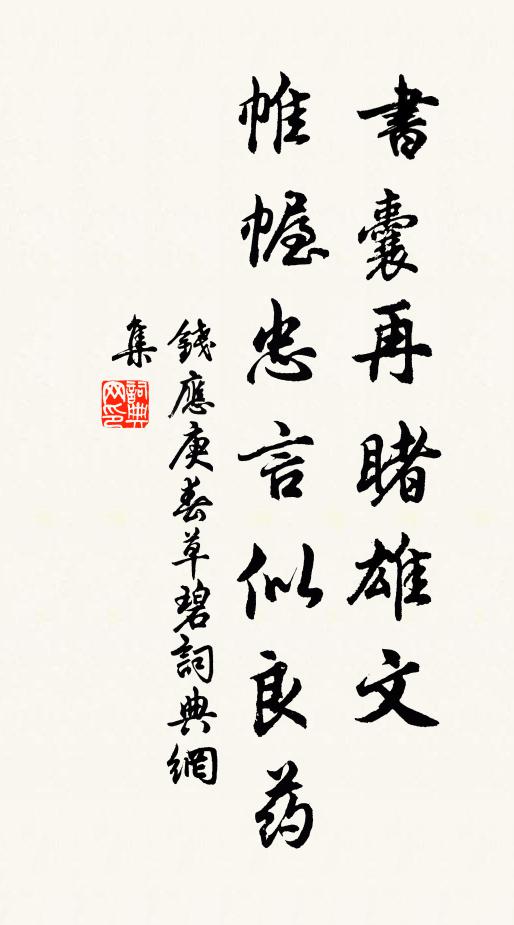 書囊再睹雄文
帷幄忠言似良药
錢應庚春草碧詞典網
集
詞典
网印